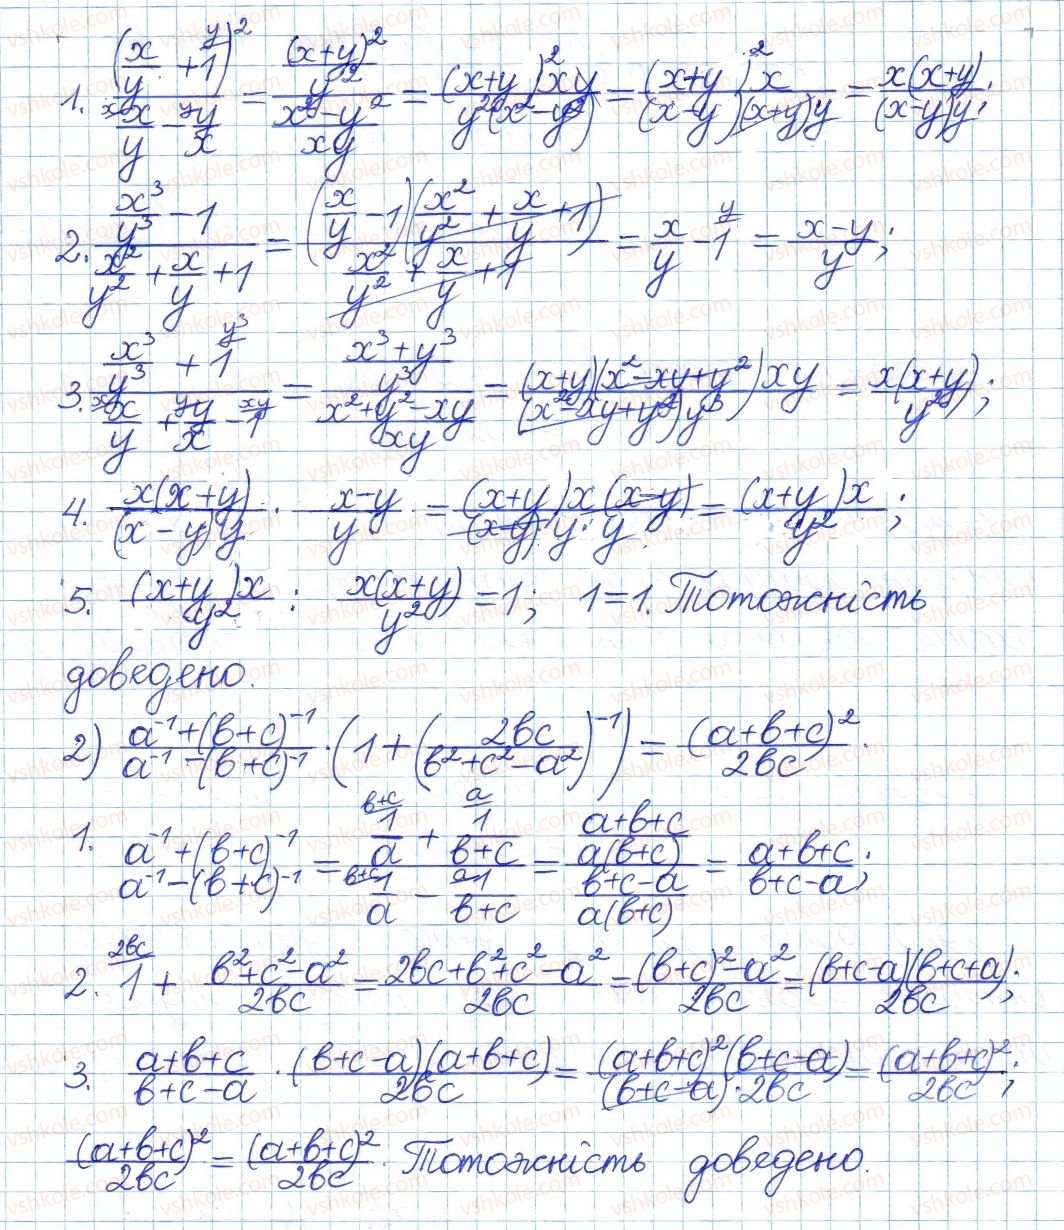 1. \frac{(\frac{x}{y} + 1^{y})^2}{\frac{x}{y} - \frac{y}{x}} = \frac{\frac{(x+y)^2}{y^2}}{\frac{x^2-y^2}{xy}} = \frac{(x+y)^2xy}{y^2(x^2-y^2)} = \frac{(x+y)^2x}{(x-y)(x+y)y} = \frac{x(x+y)}{(x-y)y};
2. \frac{\frac{x^3}{y^3} - 1}{\frac{x^2}{y^2} + \frac{x}{y} + 1} = \frac{(\frac{x}{y} - 1)(\frac{x^2}{y^2} + \frac{x}{y} + 1)}{\frac{x^2}{y^2} + \frac{x}{y} + 1} = \frac{x}{y} - 1^{y} = \frac{x-y}{y};
3. \frac{\frac{x^3}{y^3} + 1^{y^3}}{\frac{x}{y} + \frac{y}{x} - 1^{xy}} = \frac{\frac{x^3+y^3}{y^3}}{\frac{x^2+y^2-xy}{xy}} = \frac{(x+y)(x^2-xy+y^2)xy}{(x^2-xy+y^2)y^3} = \frac{x(x+y)}{y^2};
4. \frac{x(x+y)}{(x-y)y} · \frac{x-y}{y} = \frac{(x+y)x(x-y)}{(x-y)y·y} = \frac{(x+y)x}{y^2};
5. \frac{(x+y)x}{y^2} : \frac{x(x+y)}{y^2} = 1; 1=1. Тотожність
доведено.
2) \frac{a^{-1}+(b+c)^{-1}}{a^{-1}-(b+c)^{-1}} · (1+(\frac{2bc}{b^2+c^2-a^2})^{-1}) = \frac{(a+b+c)^2}{2bc}.
1. \frac{a^{-1}+(b+c)^{-1}}{a^{-1}-(b+c)^{-1}} = \frac{^{b+c}\frac{1}{a} + ^{a}\frac{1}{b+c}}{^{b+c}\frac{1}{a} - ^{a}\frac{1}{b+c}} = \frac{\frac{a+b+c}{a(b+c)}}{\frac{b+c-a}{a(b+c)}} = \frac{a+b+c}{b+c-a};
2. ^{2bc}1 + \frac{b^2+c^2-a^2}{2bc} = \frac{2bc+b^2+c^2-a^2}{2bc} = \frac{(b+c)^2-a^2}{2bc} = \frac{(b+c-a)(b+c+a)}{2bc};
3. \frac{a+b+c}{b+c-a} · \frac{(b+c-a)(a+b+c)}{2bc} = \frac{(a+b+c)^2(b+c-a)}{(b+c-a)·2bc} = \frac{(a+b+c)^2}{2bc};
\frac{(a+b+c)^2}{2bc} = \frac{(a+b+c)^2}{2bc}. Тотожність доведено.